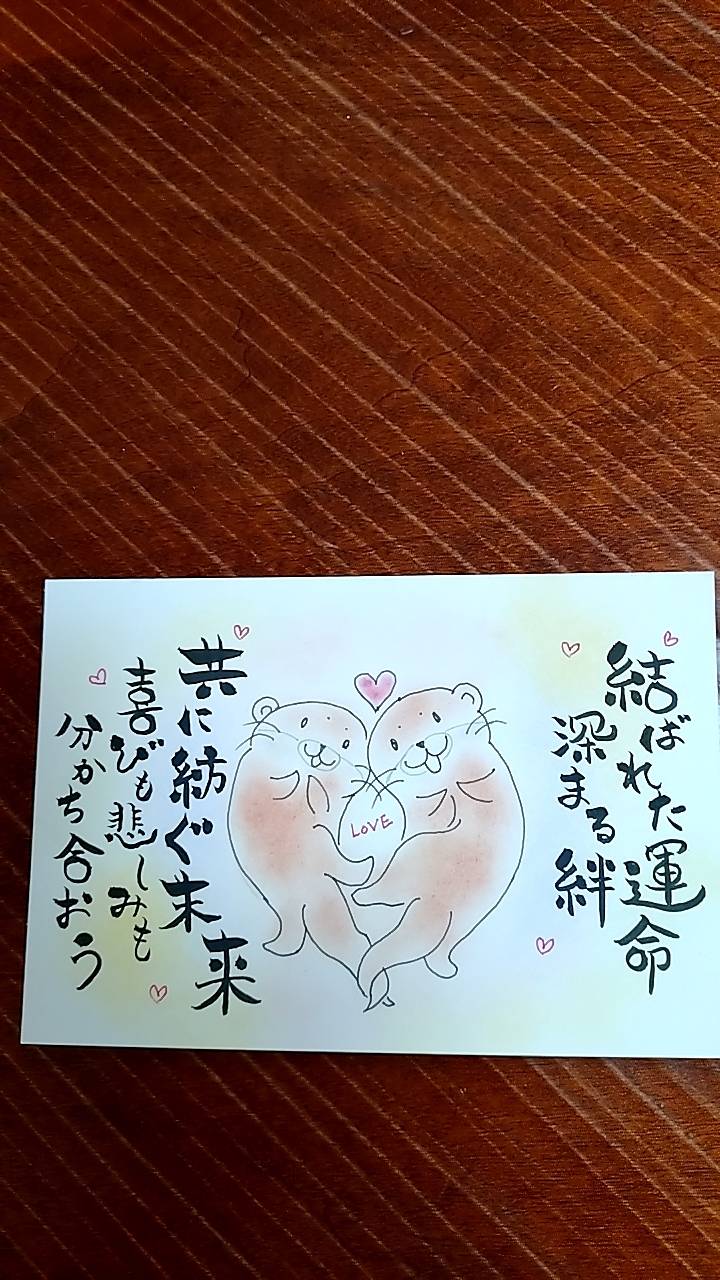 結ばれた運命
深まる絆
LOVE
共に紡ぐ未来
喜びも悲しみも
分かち合おう